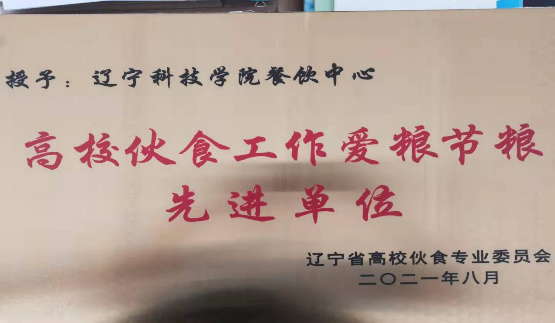 授予：辽宁科技学院餐饮中心
高校伙食工作爱粮节粮
先进单位
辽宁省高校伙食专业委员会
二〇二一年八月